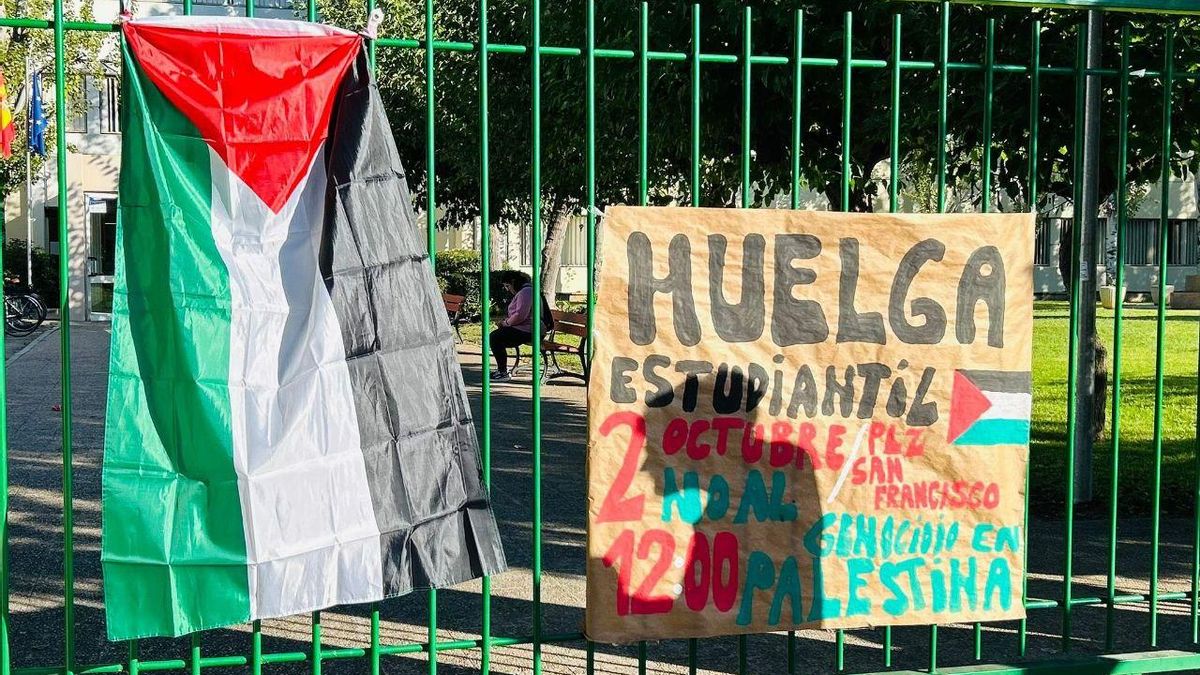 HUELGA
ESTUDIANTIL
2 OCTUBRE / PLZ SAN FRANCISCO
12:00
NO AL GENOCIDIO EN
PALESTINA